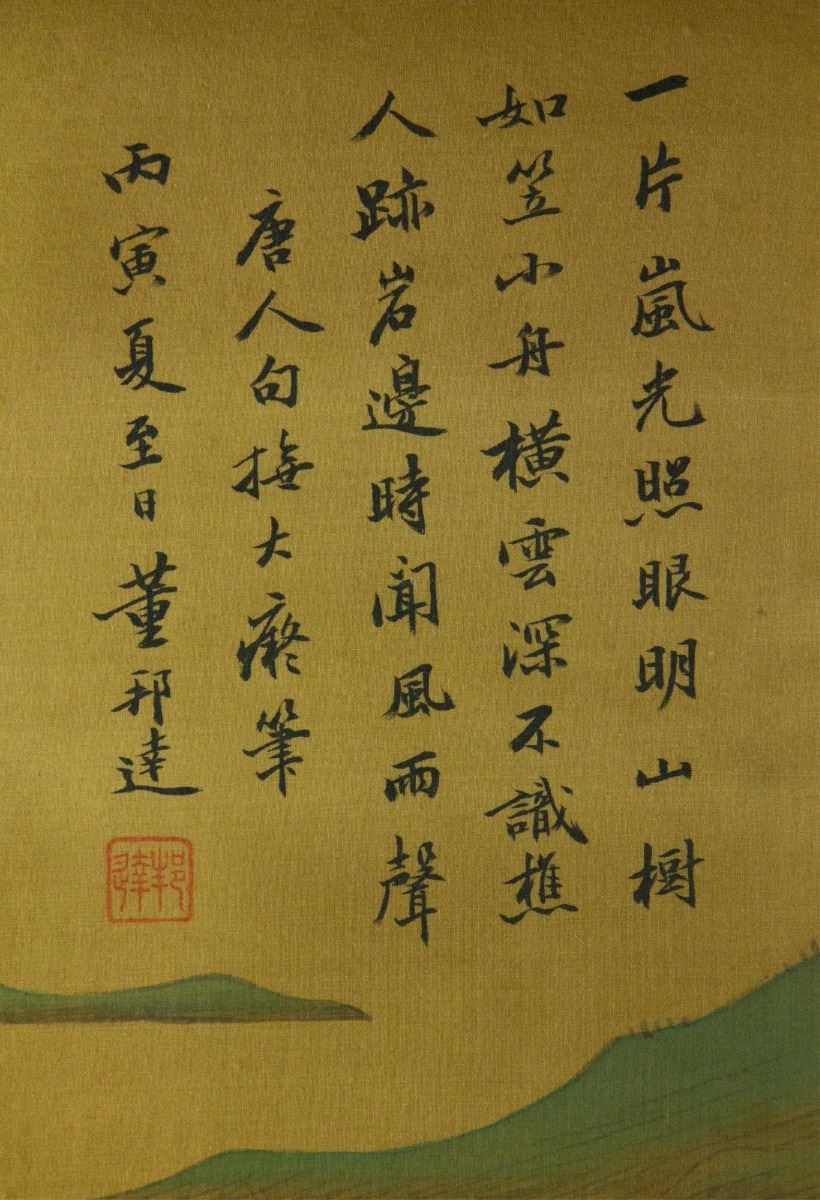 一片嵐光照眼明山樹
如笠小舟橫雲深不識樵
人跡岩邊時聞風雨聲
唐人句撫大癡筆
丙寅夏至日董邦達
邦達